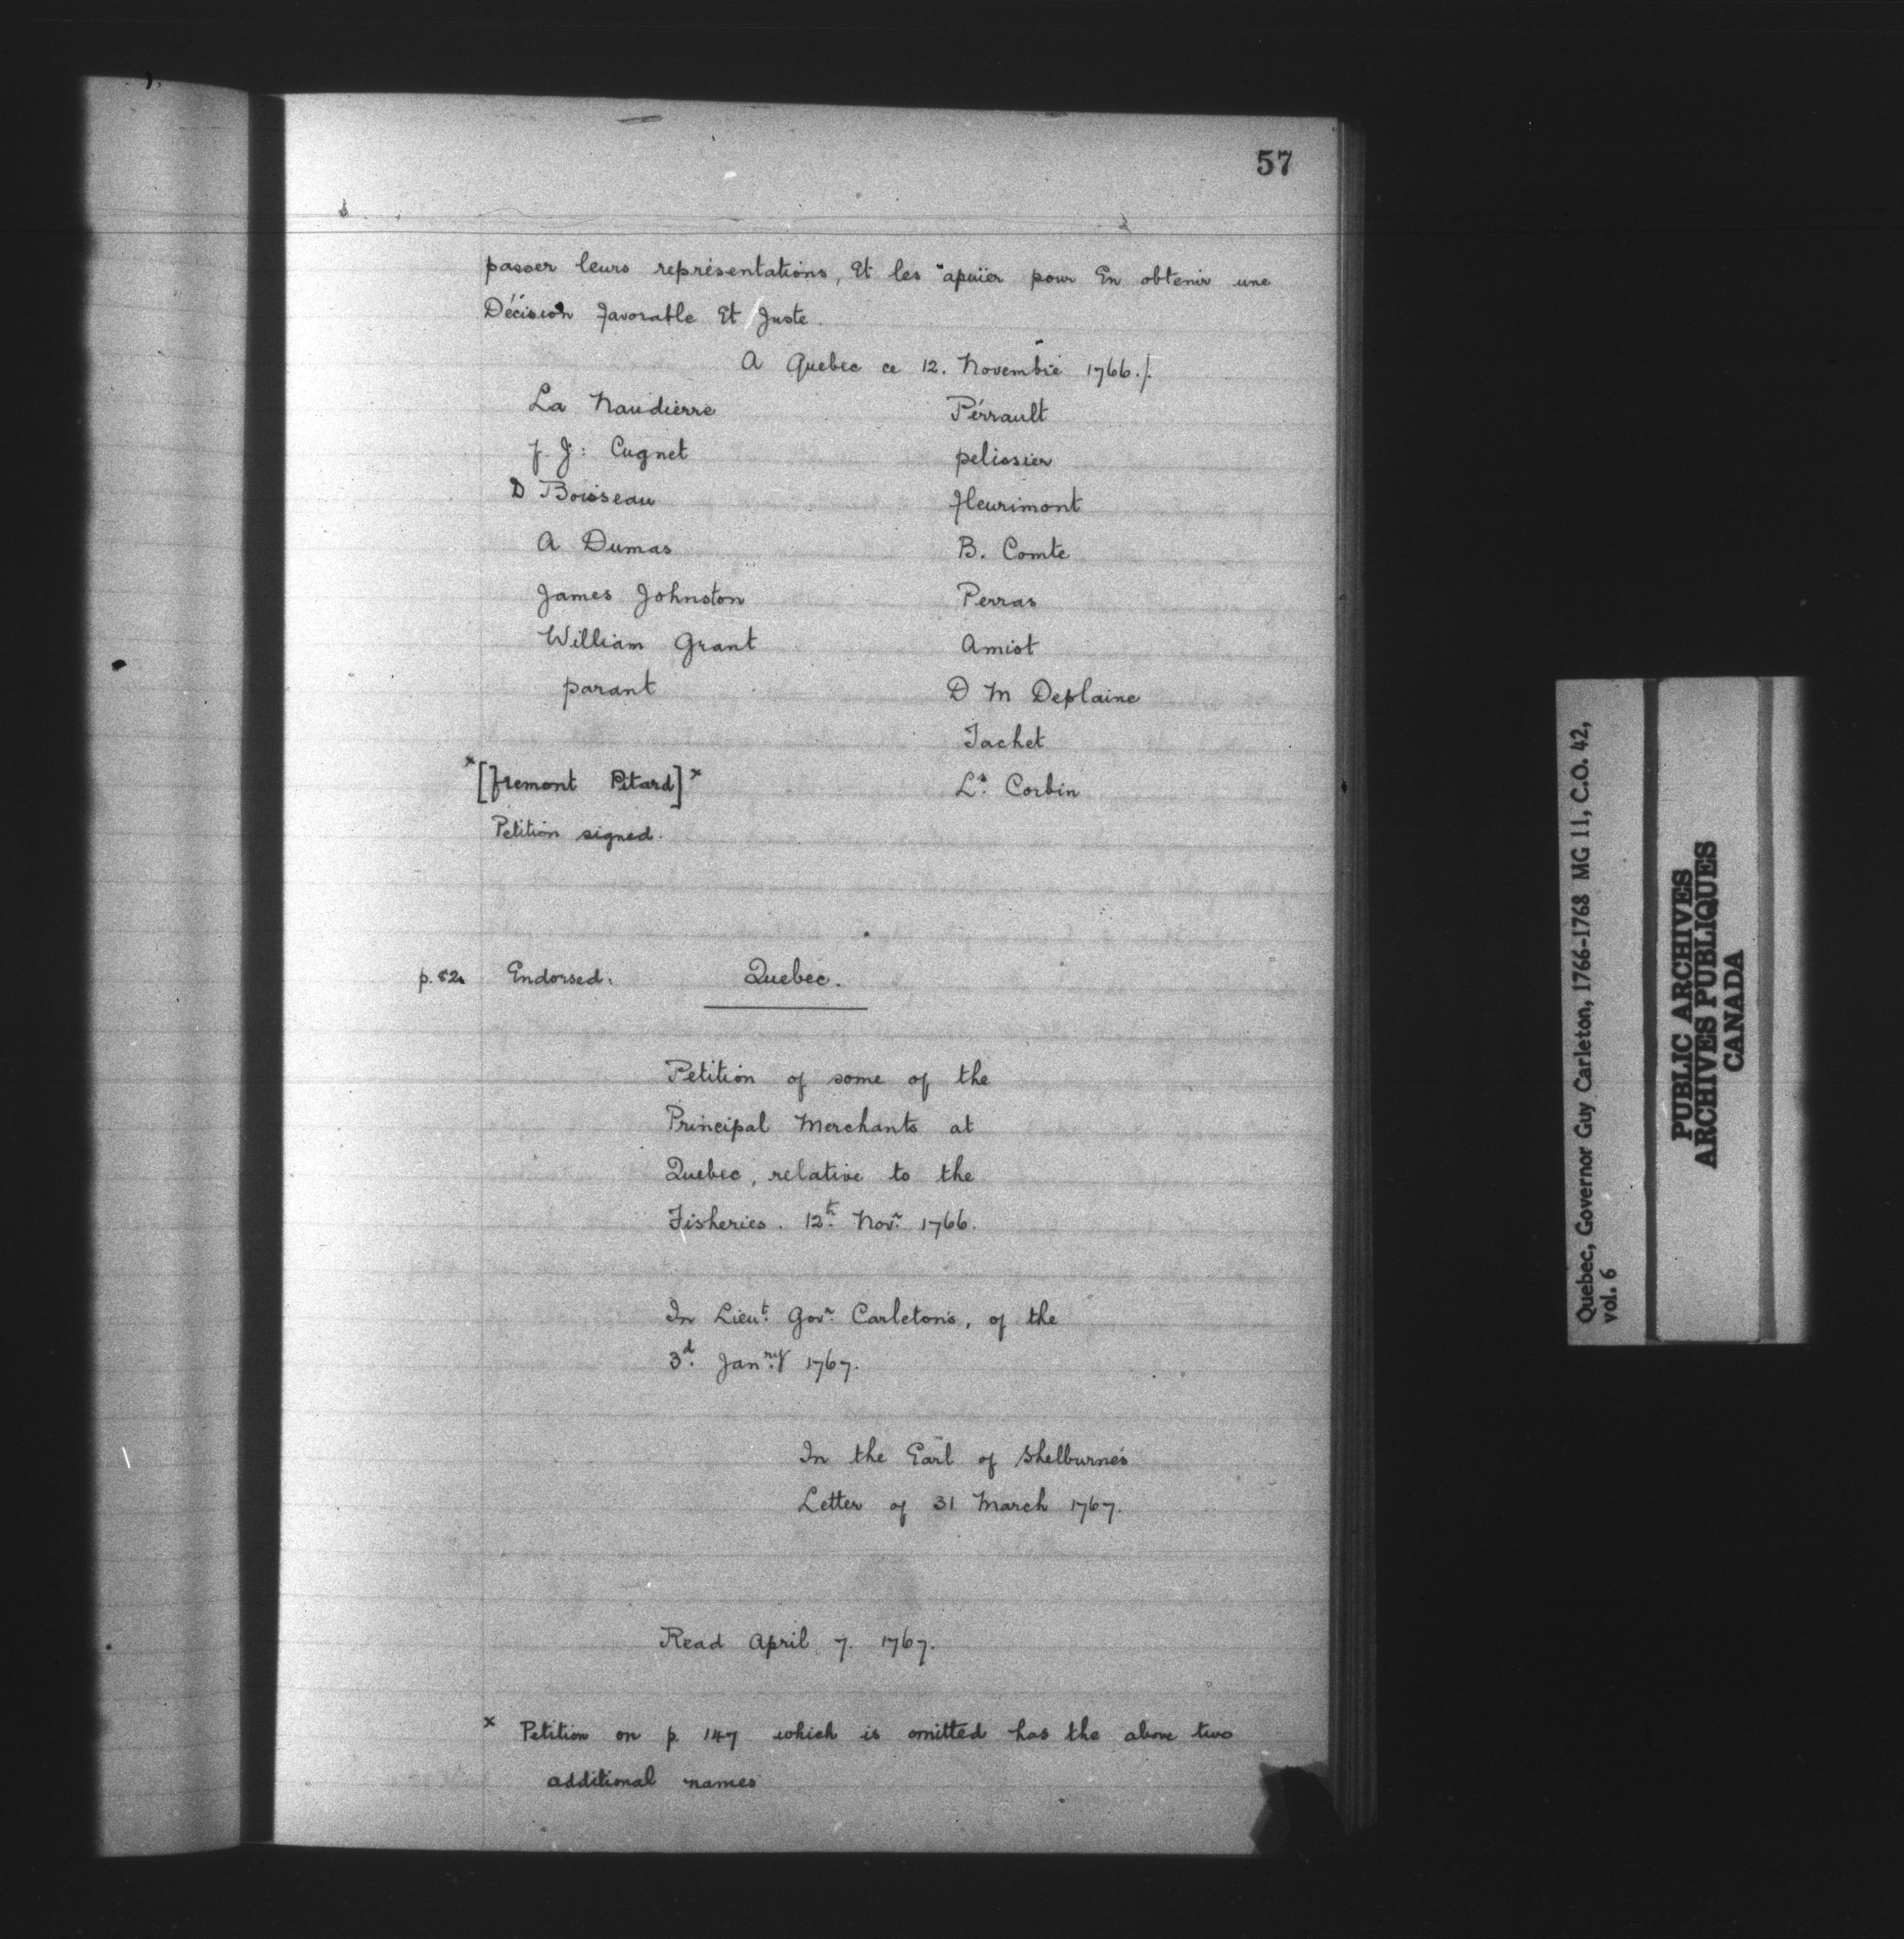 57
passer leurs représentations, Et les apuïer pour En obtenir une
Décision favorable Et Juste.
A Quebec ce 12. Novembre 1766./.
La Naudierre
Pérrault
f. J: Cugnet
pelissier
D Boisseau
fleurimont
A Dumas
B. Comte
James Johnston
Perras
William Grant
Amiot
parant
D M Deplaine
Tachet
x [fremont Pitard] x
Ls. Corbin
Petition signed.
p. 82. Endorsed: Quebec.
Petition of some of the
Principal Merchants at
Quebec, relative to the
Fisheries. 12th. Novr. 1766.
In Lieut. Govr. Carleton's, of the
3d. Janry 1767.
In the Earl of Shelburne's
Letter of 31 March 1767.
Read April 7. 1767.
x Petition on p. 147 which is omitted has the above two
additional names
Quebec, Governor Guy Carleton, 1766-1768 MG 11, C.O. 42,
vol. 6
PUBLIC ARCHIVES
ARCHIVES PUBLIQUES
CANADA